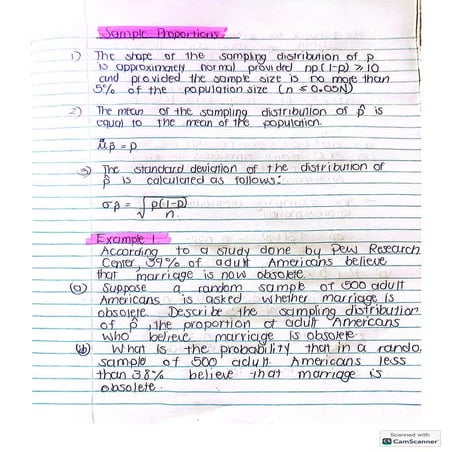 Sample Proportions
1) The shape of the sampling distribution of p
is approximately normal provided np(1-p) ≥ 10
and provided the sample size is no more than
5% of the population size (n ≤ 0.05N)
2) The mean of the sampling distribution of p̂ is
equal to the mean of the population.
μp̂ = p
3) The standard deviation of the distribution of
p̂ is calculated as follows:
σp̂ = √p(1-p)/n
Example 1
According to a study done by Pew Research
Center, 39% of adult Americans believe
that marriage is now obsolete.
(a) Suppose a random sample of 500 adult
Americans is asked whether marriage is
obsolete. Describe the sampling distribution
of p̂, the proportion of adult Americans
who believe marriage is obsolete.
(b) What is the probability that in a rando
sample of 500 adult Americans less
than 38% believe that marriage is
obsolete.
Scanned with
CS CamScanner